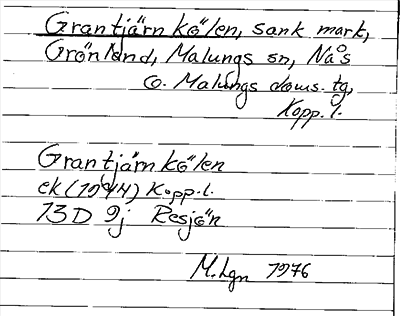 Grantjärnkölen, sank mark,
Grönland, Malungs sn, Nås
o. Malungs doms. tg,
Kopp. l.
Grantjärnkölen
ek (1944) Kopp. l.
13D 9j Resjön
M. Lgn 1976